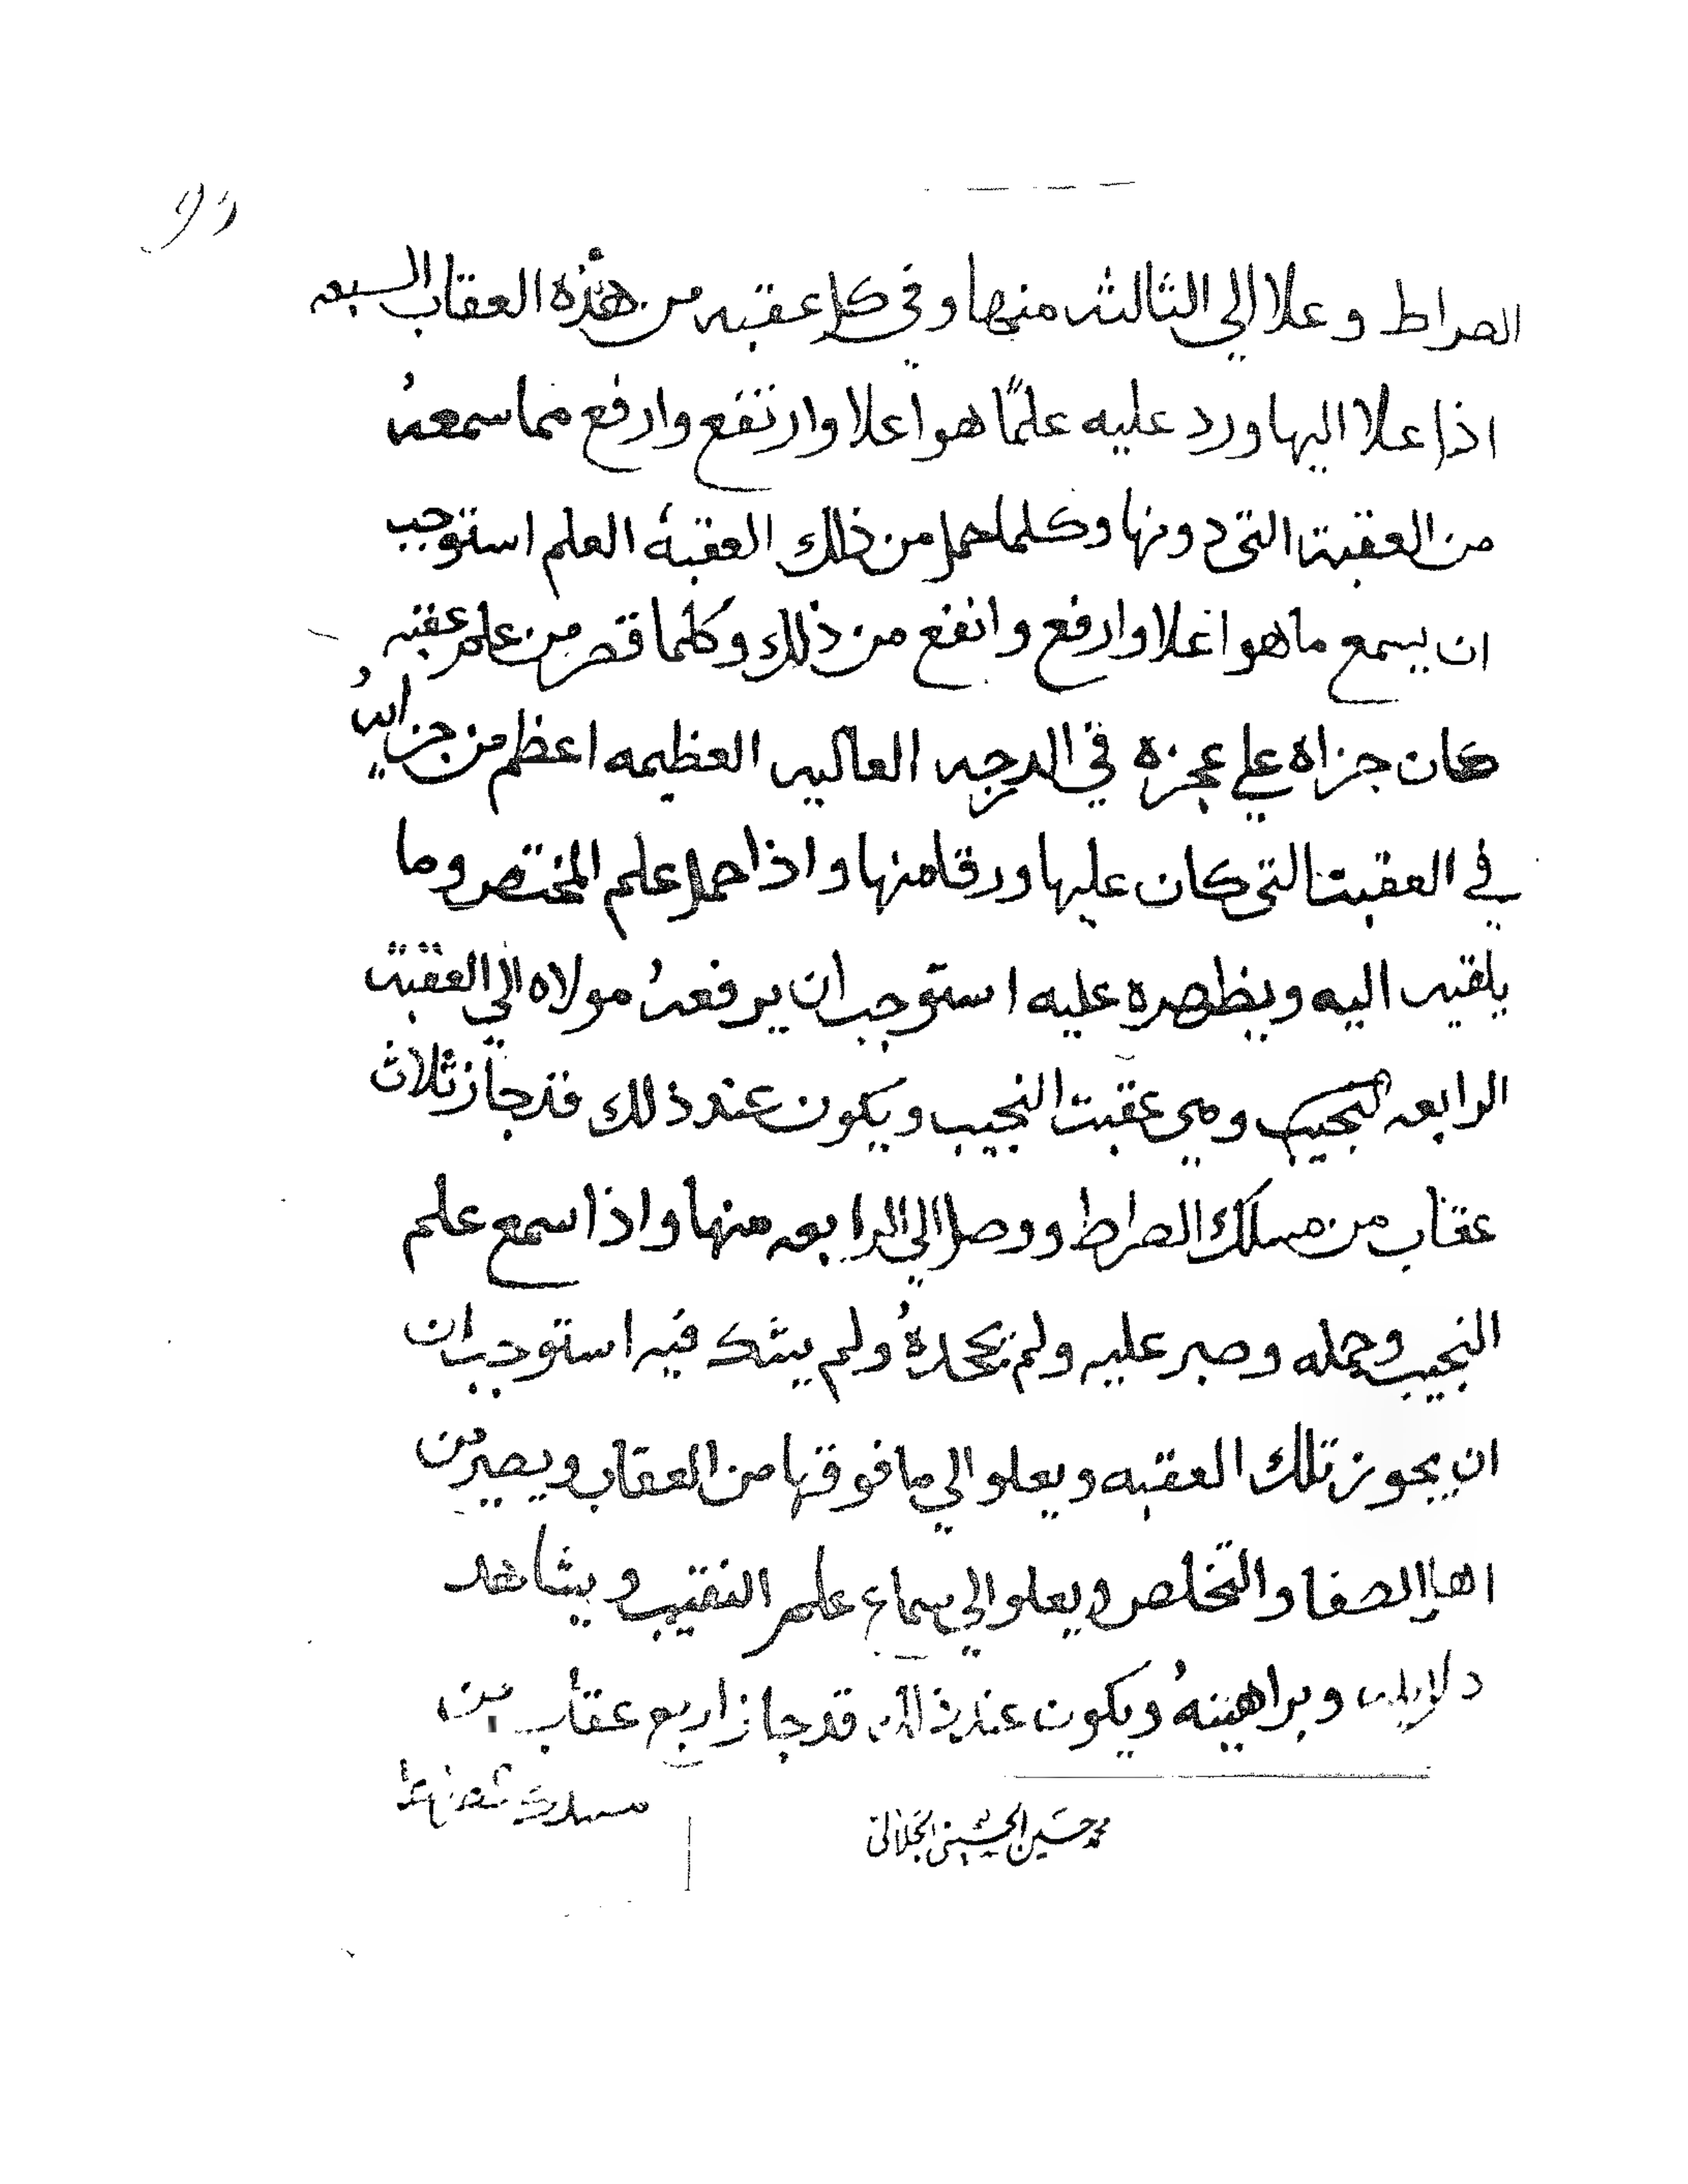 الصراط وعلا الي الثالثه منها وفي كل عقبه من هذه العقاب السبعه
اذا علا اليها ورد عليه علمًا هو اعلا وارتفع وارفع مما سمعهُ
من العقبة التي دونها وكلما حمل من ذلك العقبة العلم استوجب
ان يسمع ما هو اعلا وارفع وانفع من ذلك وكلما قصر من علم عقبه
كان جزاه علي عجزه في الدرجه العاليه العظيمه اعظم من جزايهُ
في العقبت التي كان عليها ورقا منها واذا حمل علم المختص وما
يلقيه اليه ويظهره عليه استوجب ان يرفعهُ مولاه الي العقبت
الرابعه وهي عقبت النجيب ويكون عند ذلك قد جاز ثلاث
عقاب من مسلك الصراط ووصل الي الرابعه منها واذا سمع علم
النجيب وحمله وصبر عليه ولم يجحدهُ ولم يشك فيه استوجب ان
ان يجوز تلك العقبه ويعلو الي ما فوقها من العقاب ويصير من
اهل الصفا والتخلص ويعلو الي سماع علم النقيب ويشاهد
دلايله وبراهينهُ ويكون عند ذلك قد جاز اربع عقاب من
محمد حسين الحسيني الجلالي